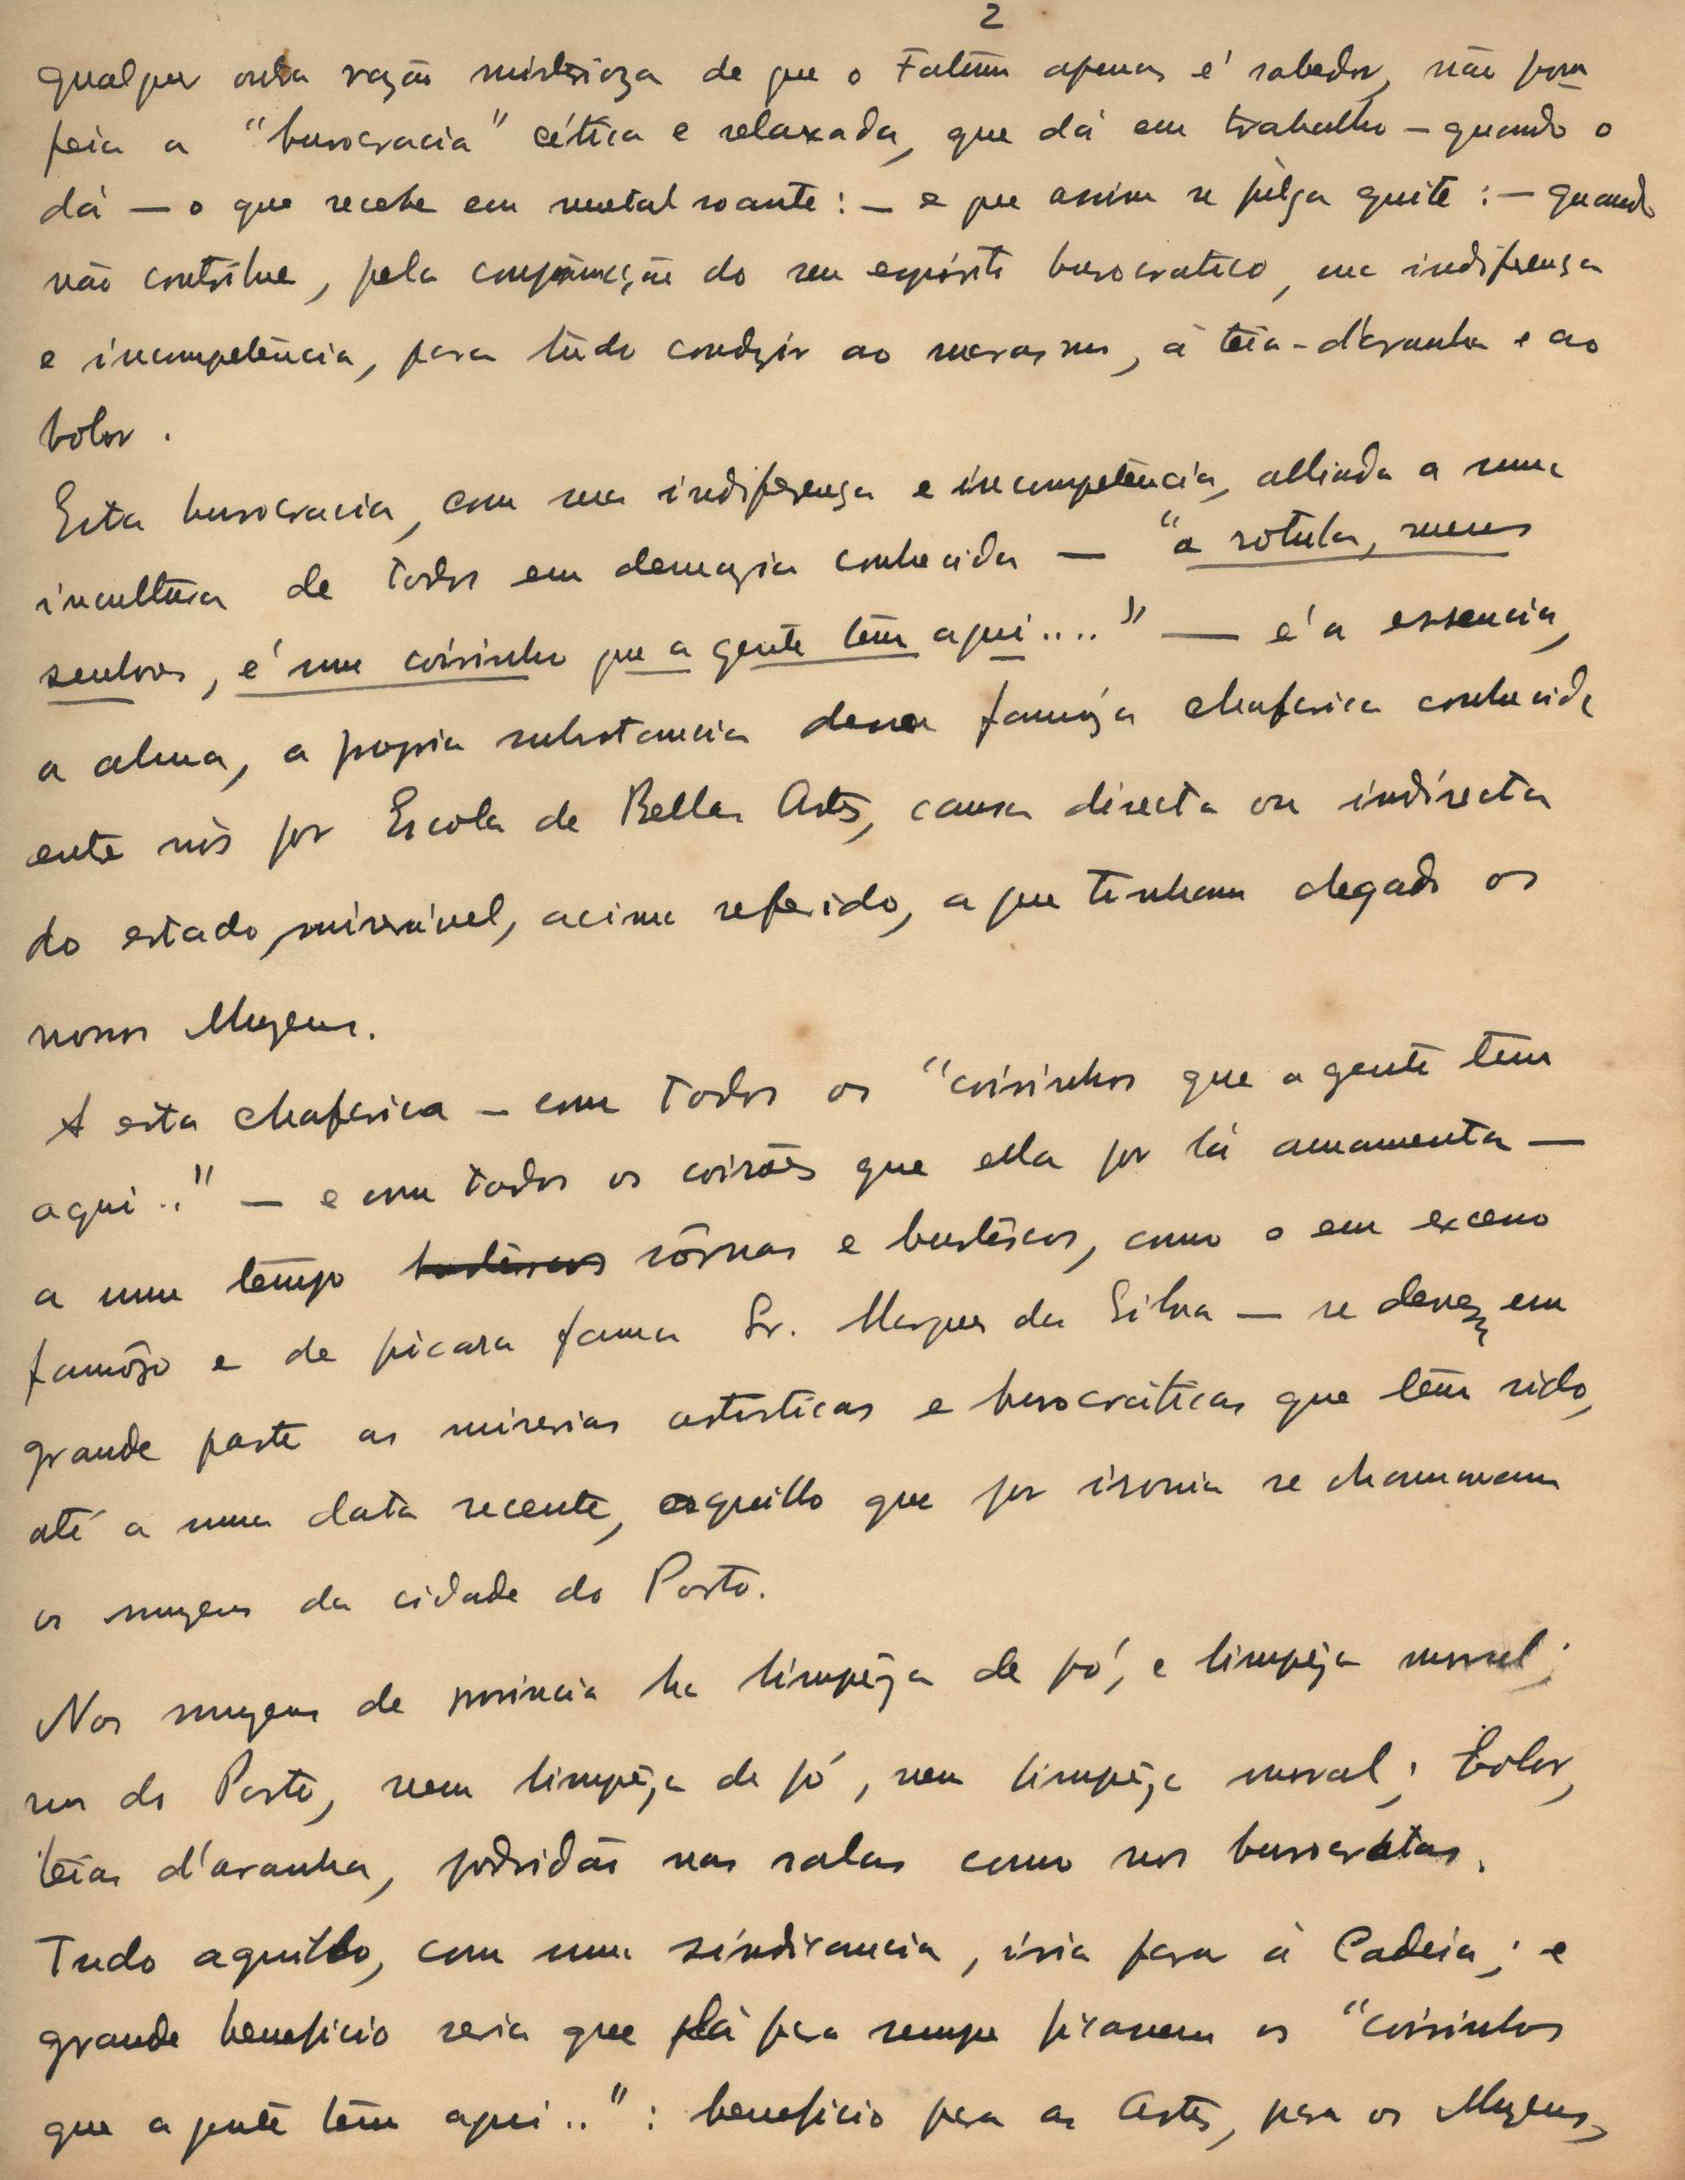 2
qualquer outra razão misterioza de que o Fatum apenas é sabedor, não pom
peia a "burocracia" cética e relaxada, que dá em trabalho – quando o
dá – o que recebe em metal soante: – e que assim se julga quite: – quando
não contribue, pela do seu espirito burocratico, sua indiferença
e incompetência, para tudo conduzir ao marasmo, á teia-d'aranha e ao
bolor.
Esta burocracia, com sua indiferença e incompetência, alliada a uma
incultura de todos em demazia conhecida — "a rotula, meus
senhores, é um coisinho que a gente têm aqui...." — é a essencia,
a alma, a propria substancia dessa famóza chafarica conhecida
entre nós por Escola de Bellas Artes, causa directa ou indirecta
do estado, miserável, acima referido, a que tinham chegado os
nossos Muzeus.
A esta chafarica – com todos os "coisinhos que a gente têm
aqui.." – e com todos os coisões que ella por lá amamenta —
a um tempo sôrnas e burlêscos, como o em excesso
famôzo e de picara fama Sr. Marques da Silva — se devem, em
grande parte as miserias artisticas e burocráticas que têm sido,
até a uma data recente, aquillo que por ironia se chamavam
os muzeus da cidade do Porto.
Nos muzeus de provincia ha limpêza de pó, e limpêza moral;
nos do Porto, nem limpêza de pó, nem limpêza moral; bolor,
teias d'aranha, podridão nas salas como nos burocratas.
Tudo aquillo, com uma sindicancia, iria para á Cadeia; e
grande beneficio seria que lá para sempre ficassem os "coisinhos
que a gente têm aqui..": beneficio para as Artes, para os Muzeus,